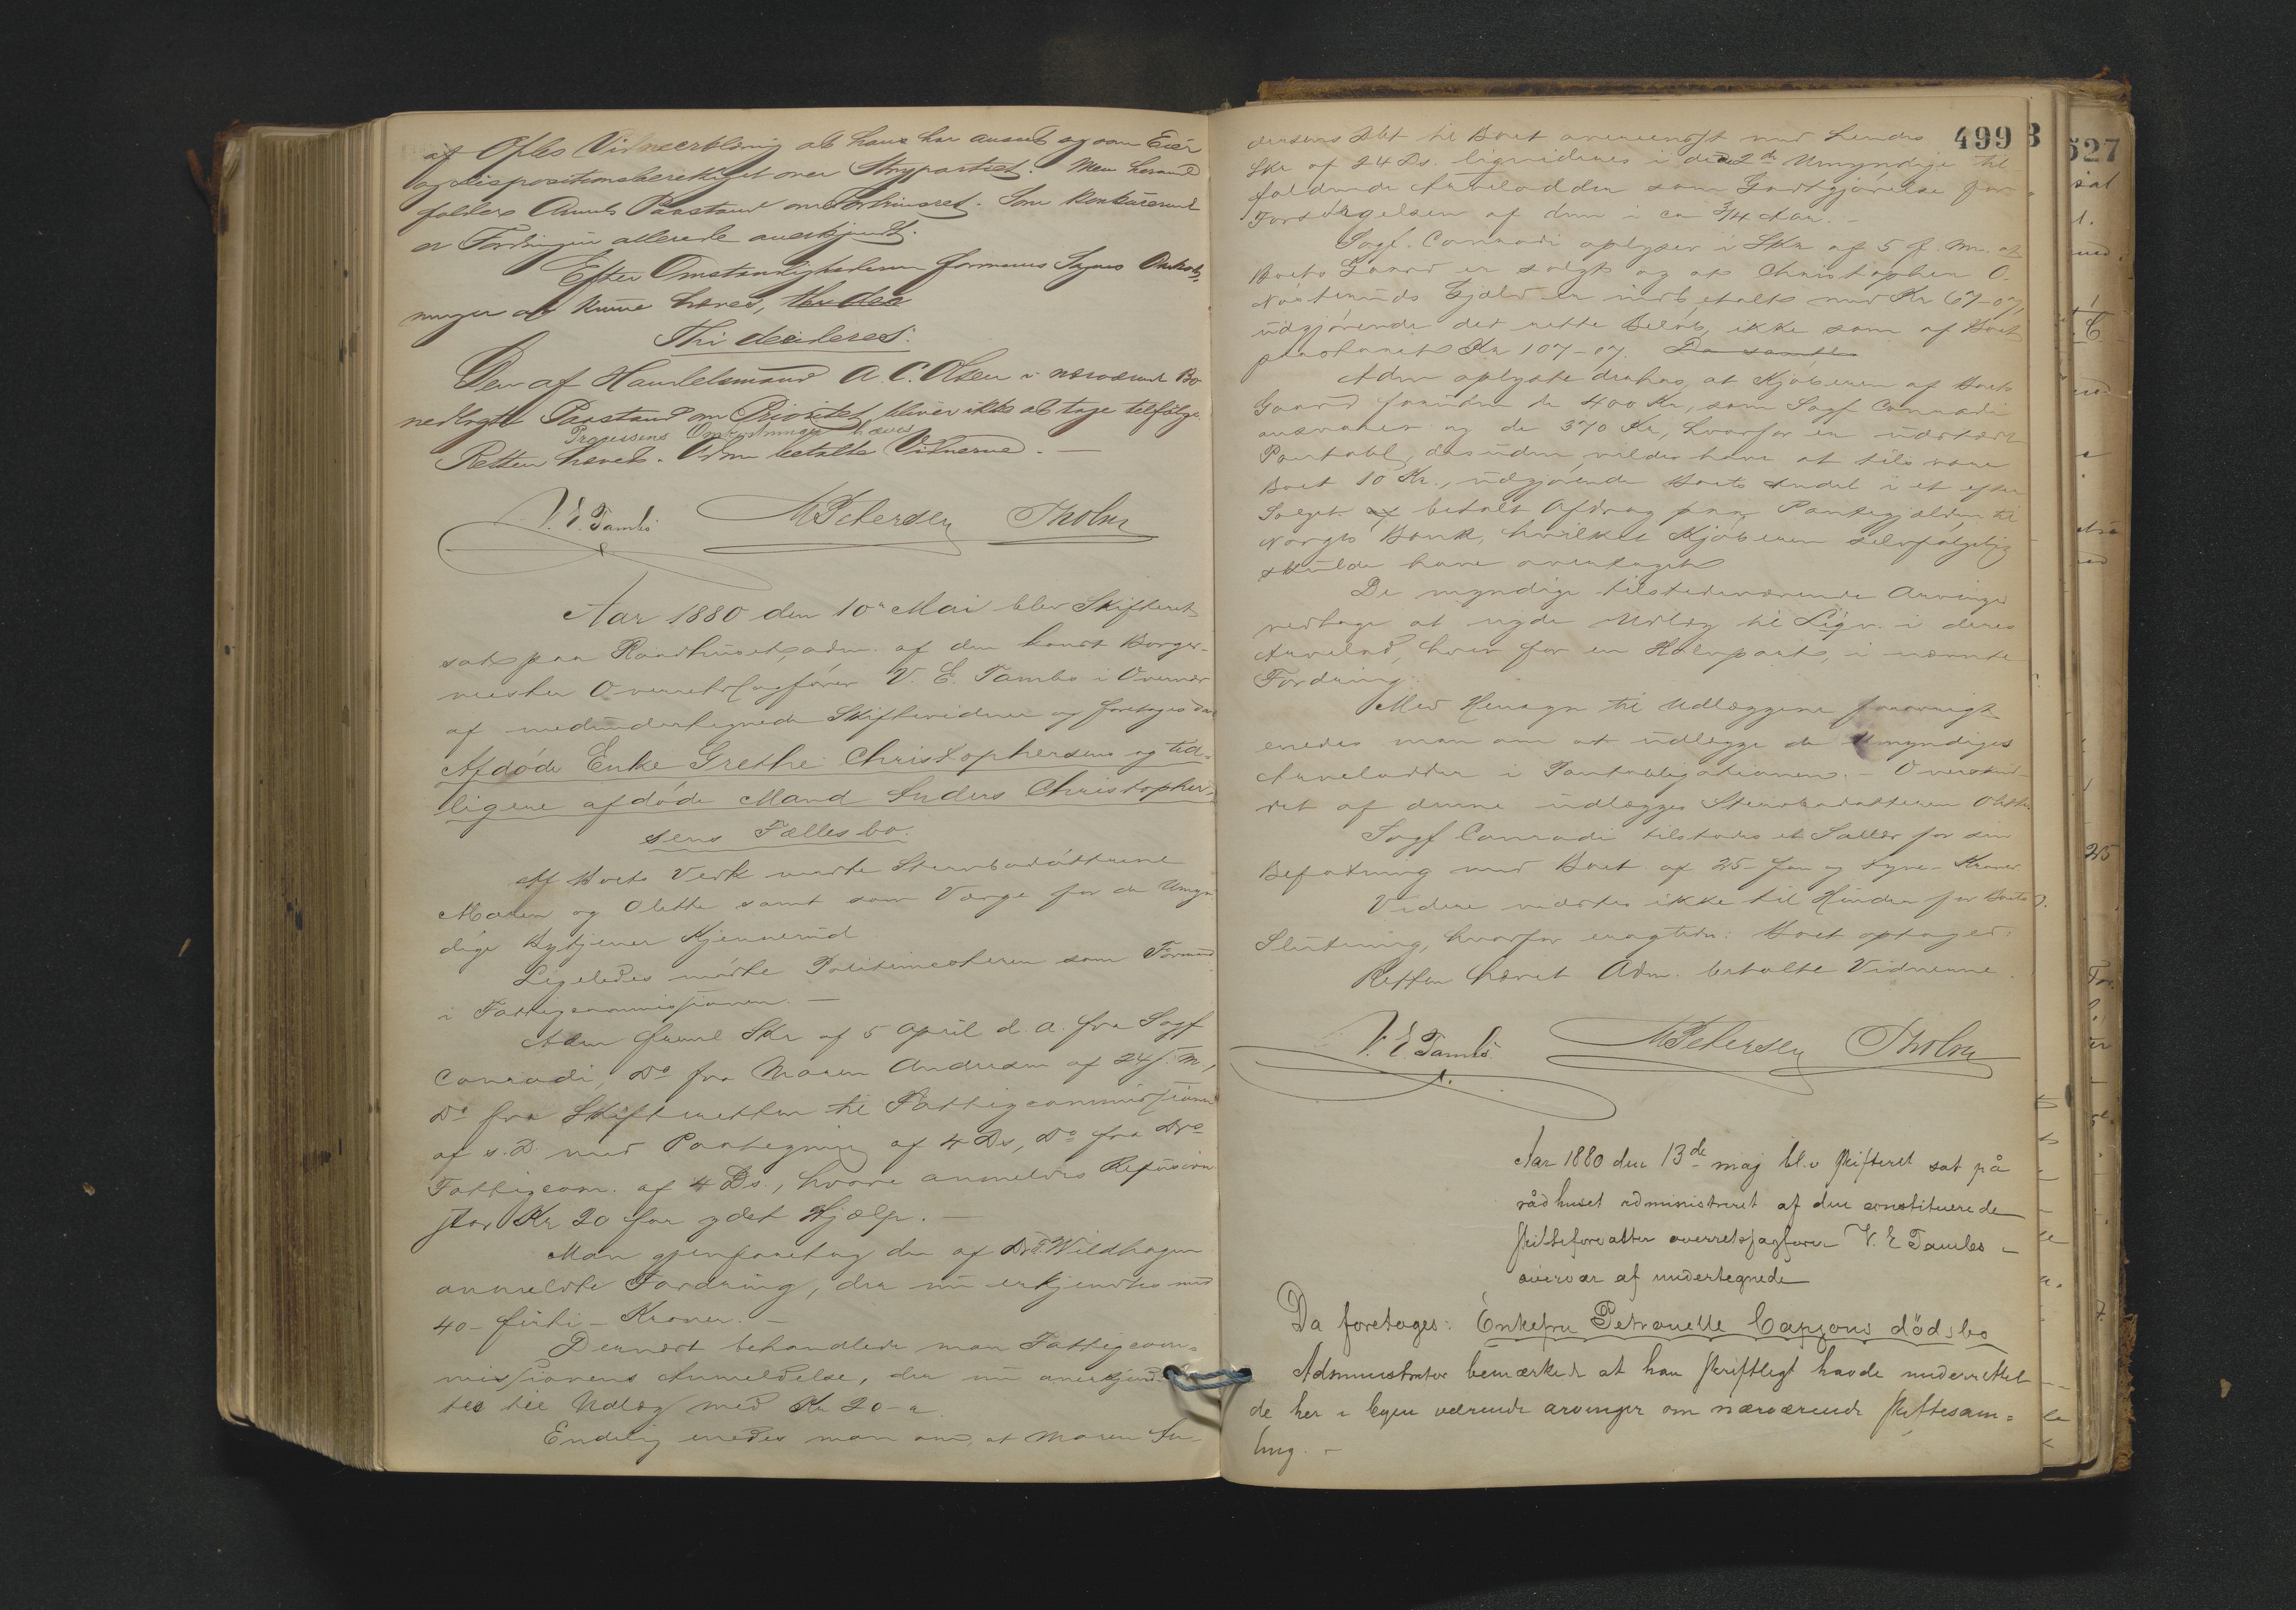 af Ofles Vidneerklæring at hans har anseet sig som Eier
og dispositionsberettiget over Strypartiet. Men herved
falder Annels Paastand om Forhinsret. Som Konkurrent
er Fordringen allerede anerkjendt.
Efter Omstændighederne formenes Sagens Omkost-
ninger at kunne hæves,
Thi decideres:
Den af Handelsmand A. C. Olsen i nærværende Bo
nedlagte Paastand om Prioritet bliver ikke at tage tilfølge.
Processens Omkostninger hæves
Retten hævet. Adm betalte Vidnerne. —
V. E. Tambs M Petersen Tholm
Aar 1880 den 10de Mai blev Skifteret
sat paa Raadhuset, adm. af den konst Borger-
mester Overretssagfører V. E. Tambs i Overvær
af nedundertegnede Skiftevidner og foretoges da
Afdøde Enke Grethe Christophersens og tid-
ligere afdøde Mand Anders Christopher-
sens Fællesbo.
Af Boets Vedk mødte Stervbodøttrene
Maren og Olette samt som Værge for de Umyn
dige Kjennerud
Ligeledes mødte Politimesteren som Formand
i Fattigcommissionen. —
Adm freml Skr af 5 April d. A. fra Sagf
Conradi, Do fra Maren Andersen af 24 f. M,
Do fra Skifteretten til Fattigcommissionen
af s. D. med Paategning af 4 Ds, Do fra Dro
Fattigcom. af 4 Ds., hvori anmeldes Refusion
for Kr 20 for ydet Hjælp. —
Man gjenforetog den af Dr F. Wildhagen
anmeldte Fordring, der nu erkjendtes med
40 - firti - Kroner. —
Dernæst behandlede man Fattigcom-
missionens Anmeldelse, der nu anerkjend-
tes til Udlæg med Kr 20 -
Endelig enedes man om, at Maren An-
499
dersens Debt til Boet overensst med hendes
Skr af 24 Ds. ligvideres i de 2de Umyndige til-
faldende Arvelodder som Godtgjørelse for
Forsørgelsen af dem i ca 3/4 Aar. —
Sagf. Conradi oplyser i Skr af 5 f. M. at
Boets Gaard er solgt og at Christopher O.
Gjæld er indbetalt med Kr 67-07,
udgjørende det rette Beløb, ikke som af Boet
paastaaet Kr 107-07. Da samtl
Adm oplyste derhos, at Kjøberen af Boets
Gaard foruden de 400 Kr, som Sagf Conradi
ansvarer og de 370 Kr, hvorfor er udstædt
Pantobl, desuden vildes have at tilsvare
Boet 10 Kr., udgjørende Boets Andel i et efter
Salget betalt Afdrag paa Pantegjælden til
Norges Bank, hvilket Kjøberen selvfølgelig
skulde have overtaget
De myndige tilstedeværende Arvinger
vedtage at nyde Udlæg til Liqv. i deres
Arvelod, hver for en Halvpart, i nævnte
Fordring.
Med Hensyn til Udlæggene forøvrigt
enedes man om at udlægge de Umyndiges
Arvelodder i Pantobligationen. — Overskud-
det af denne udlægges Stervbodatteren Olette
Sagf Conradi tilstodes et Salær for sin
Befatning med Boet af 25 - fem og tyve - Kroner
Videre vidstes ikke til Hinder for Boets
Slutning, hvorfor eragtedes: Boet optages:
Retten hævet Adm. betalte Vidnerne.
V. E. Tambs M Petersen Tholm
Aar 1880 den 13de maj blev skifteret sat på
rådhuset administreret af den constituerede
skifteforvalter overretssagfører V. E Tambs i
overvær af undertegnede
Da foretoges: Enkefru Petronelle Cappons dödsbo
Administrator bemærkede at han skriftligt havde underrettet
de her i byen værende arvinger om nærværende skiftesam=
ling. —
527